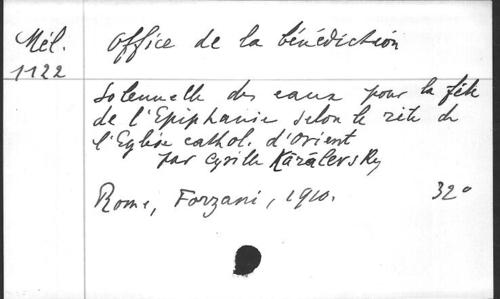 Mél. Office de la bénédiction
1122
solennelle des eaux pour la fête
de l'Epiphanie selon le rite de
l'Eglise cathol. d'Orient
par Cyrille Karalevsky
Rome, Forzani, 1910. 32°